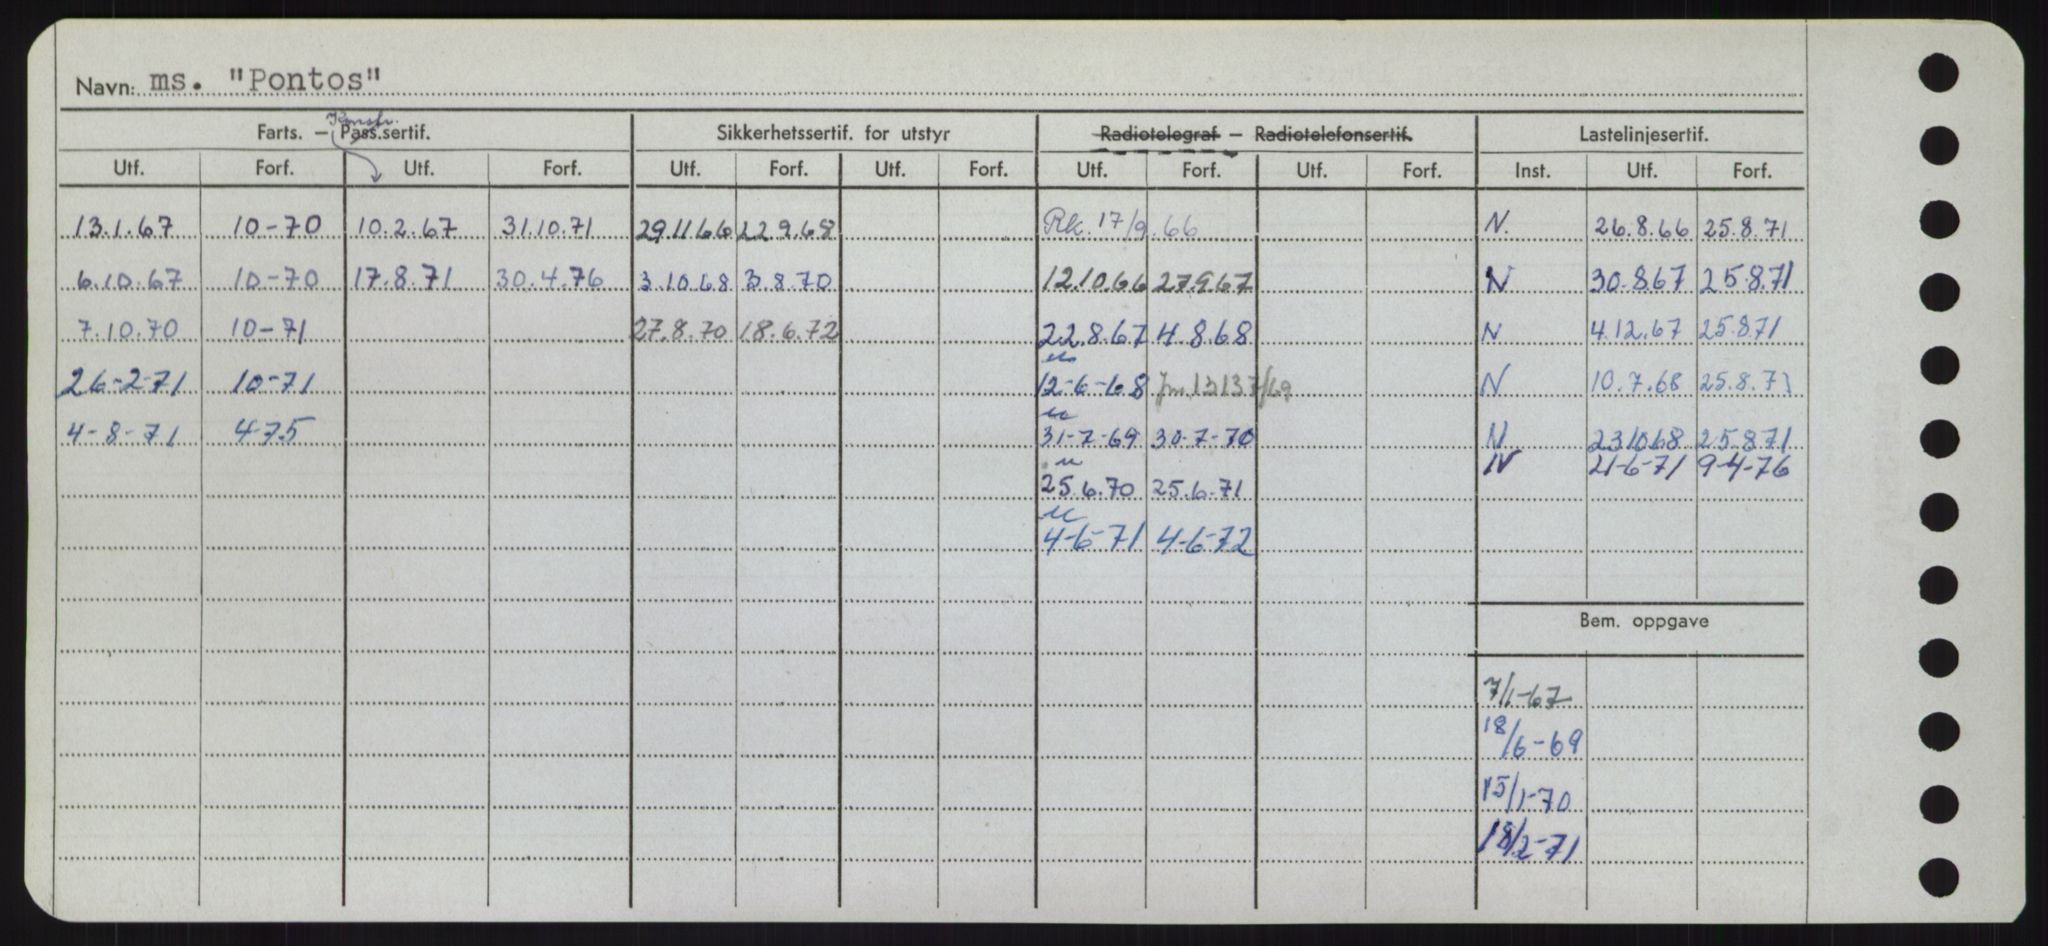 Navn: ms. "Pontos"
Konstr.
Farts. – Pass.sertif. Sikkerhetssertif. for utstyr Radiotelegraf – Radiotelefonsertif. Lastelinjesertif.
Utf. Forf. Utf. Forf. Utf. Forf. Utf. Forf. Utf. Forf. Utf. Forf. Inst. Utf. Forf.
13.1.67 10-70 10.2.67 31.10.71 29.11.66 22.9.68 Rk. 17/9.66 N. 26.8.66 25.8.71
6.10.67 10-70 17.8.71 30.4.76 3.10.68 3.8.70 12.10.66 27.9.67 N 30.8.67 25.8.71
7.10.70 10-71 27.8.70 18.6.72 22.8.67 4.8.68 N 4.12.67 25.8.71
26-2-71 10-71 12-6-68 N 10.7.68 25.8.71
4-8-71 4-75 31-7-69 30-7-70 N 23.10.68 25.8.71
N 21-6-71 9-4-76
25.6.70 25.6.71
4-6-71 4-6-72
Bem. oppgave
7/1-67
18/6-69
15/1-70
18/2-71